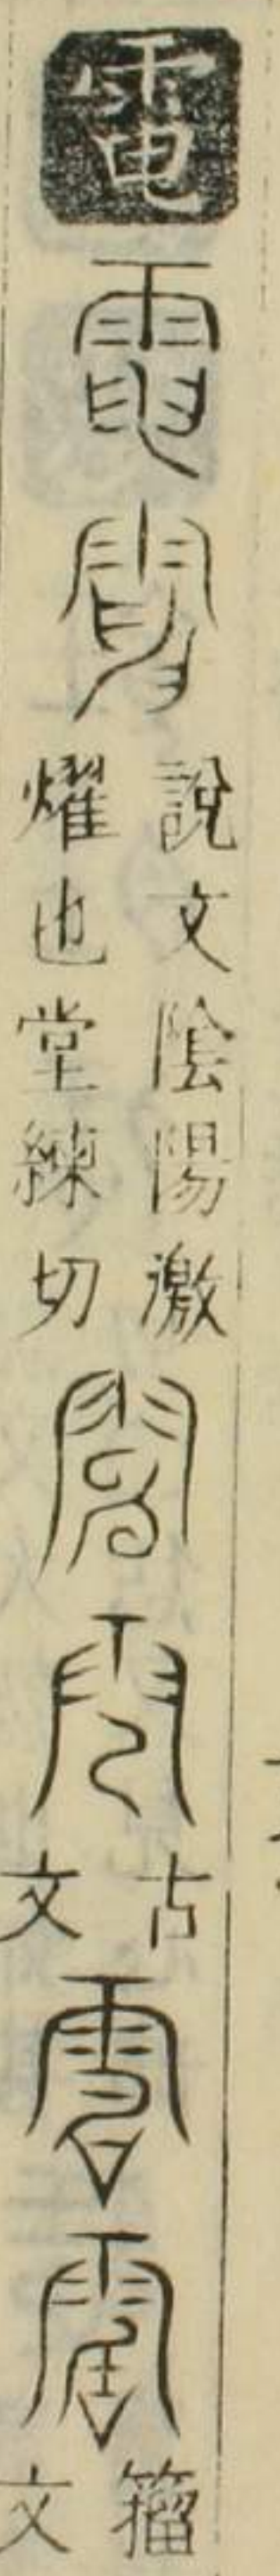 電
說文陰陽激
燿也堂練切
古
文
籀
文